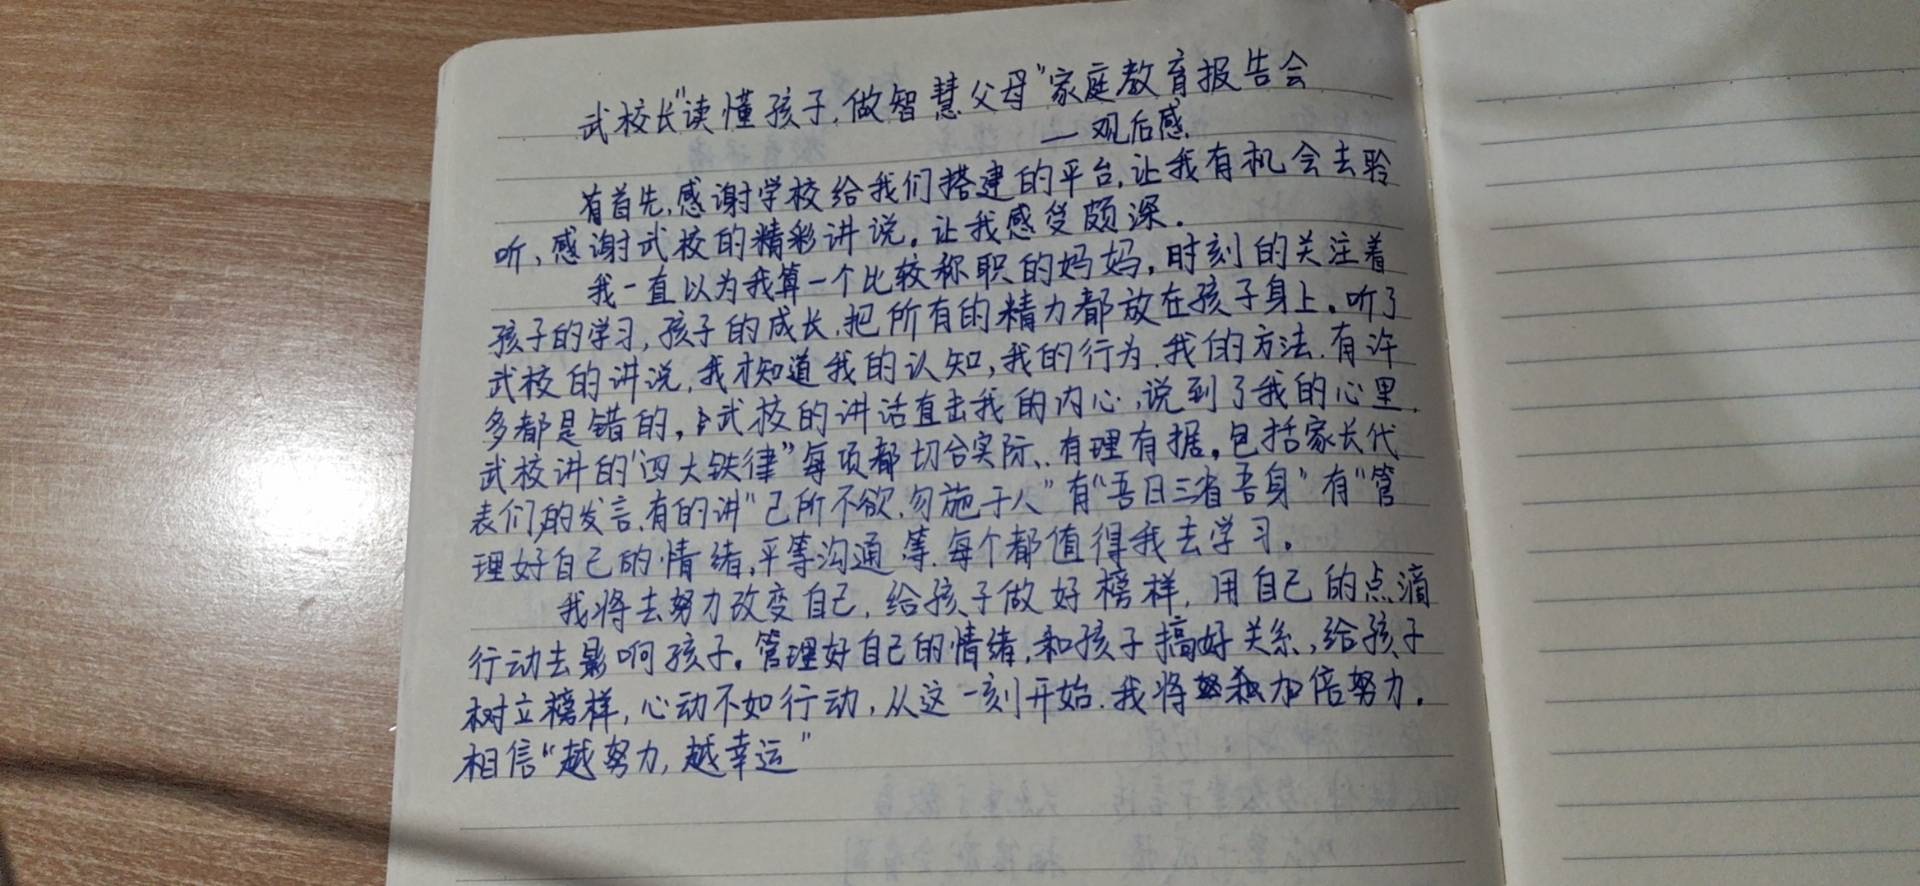 武校长“读懂孩子,做智慧父母”家庭教育报告会
—观后感.
首先,感谢学校给我们搭建的平台,让我有机会去聆
听,感谢武校的精彩讲说。让我感受颇深.
我一直以为我算一个比较称职的妈妈,时刻的关注着
孩子的学习,孩子的成长.把所有的精力都放在孩子身上。听了
武校的讲说,我才知道我的认知,我的行为.我的方法.有许
多都是错的,武校的讲话直击我的内心,说到了我的心里.
武校讲的“四大铁律”每项都切合实际、有理有据。包括家长代
表们的发言.有的讲“己所不欲.勿施于人”有“吾日三省吾身”有“管
理好自己的情绪,平等沟通等.每个都值得我去学习.
我将去努力改变自己,给孩子做好榜样,用自己的点滴
行动去影响孩子。管理好自己的情绪,和孩子搞好关系,给孩子
树立榜样,心动不如行动,从这一刻开始.我将加倍努力.
相信“越努力,越幸运”